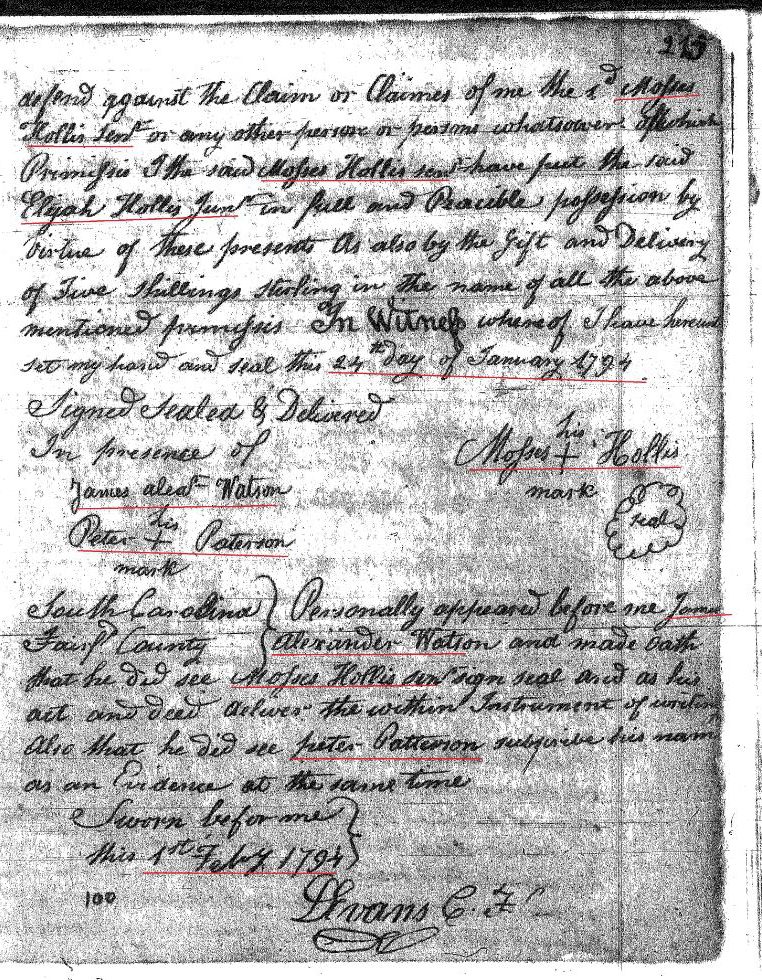 defend against the Claim or Claimes of me the sd Mosses
Hollis Senr or any other person or persons whatsower. Of which
Premisses I the said Mosses Hollis senr have put the said
Elijah Hollis Junr in full and Peacible possession by
Virtue of these presents As also by the Gift and Delivery
of Five Shillings sterling in the name of all the above
mentioned premisses In Witness whereof I have hereunt
set my hand and seal this 24th day of January 1794
Signed Sealed & Delivered
In presence of
Mosses his + mark Hollis
seal
James alexr Watson
Peter his + mark Paterson
South Carolina } Personally appeared before me James
Fairfd County { Alexander Watson and made Oath
that he did see Mosses Hollis senr sign seal and as his
act and deed deliver the within Instrument of writin
Also that he did see peter Patterson subscribe his name
as an Evidence at the same time
Sworn before me }
this 1st Feby 1794
100
DEvans C. F C